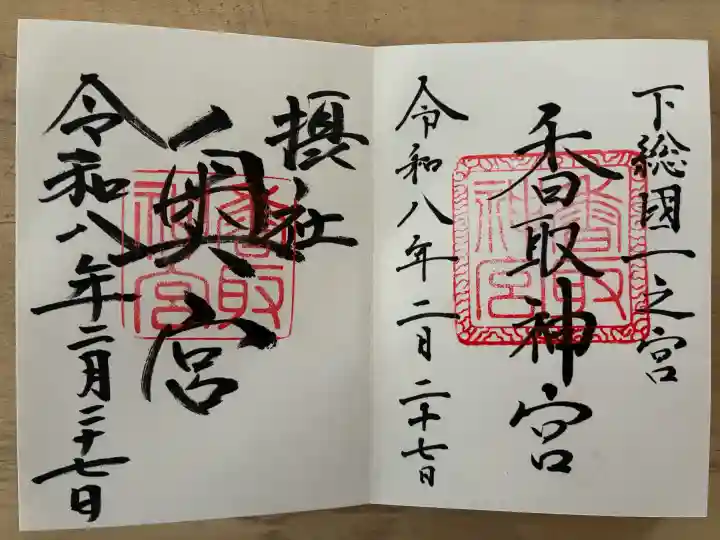 下総国一之宮
香取神宮
香取神宮
令和八年二月二十七日
摂社
奥宮
香取神宮
令和八年二月二十七日